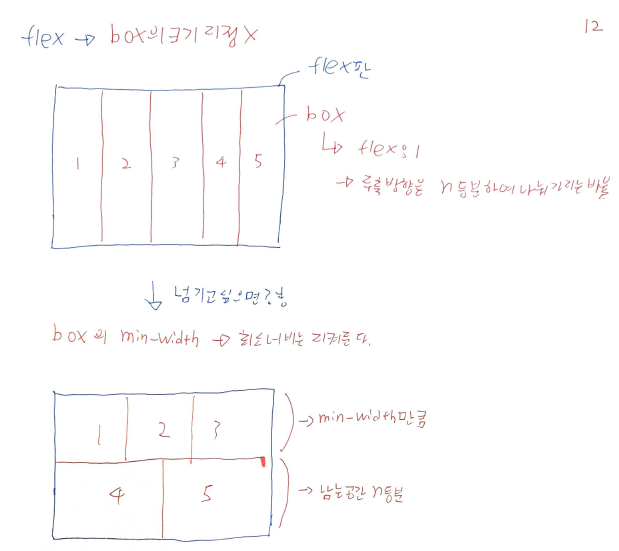 12
flex → box의 크기 지정 X
flex판
box
1 2 3 4 5
↳ flex: 1
→ 주축방향을 n등분하여 나눠가지는 비율
↓ 넘기고싶으면?
box의 min-width → 최소너비는 지켜준다.
1 2 3
→ min-width만큼
4 5
→ 남는공간 n등분